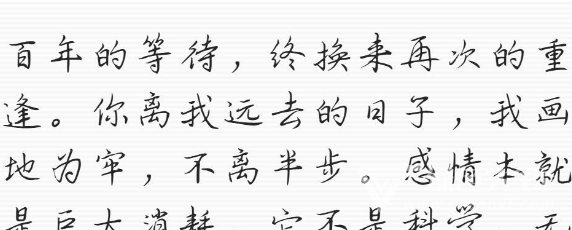 百年的等待，终换来再次的重
逢。你离我远去的日子，我画
地为牢，不离半步。感情本就
是巨大消耗，它不是科学，无